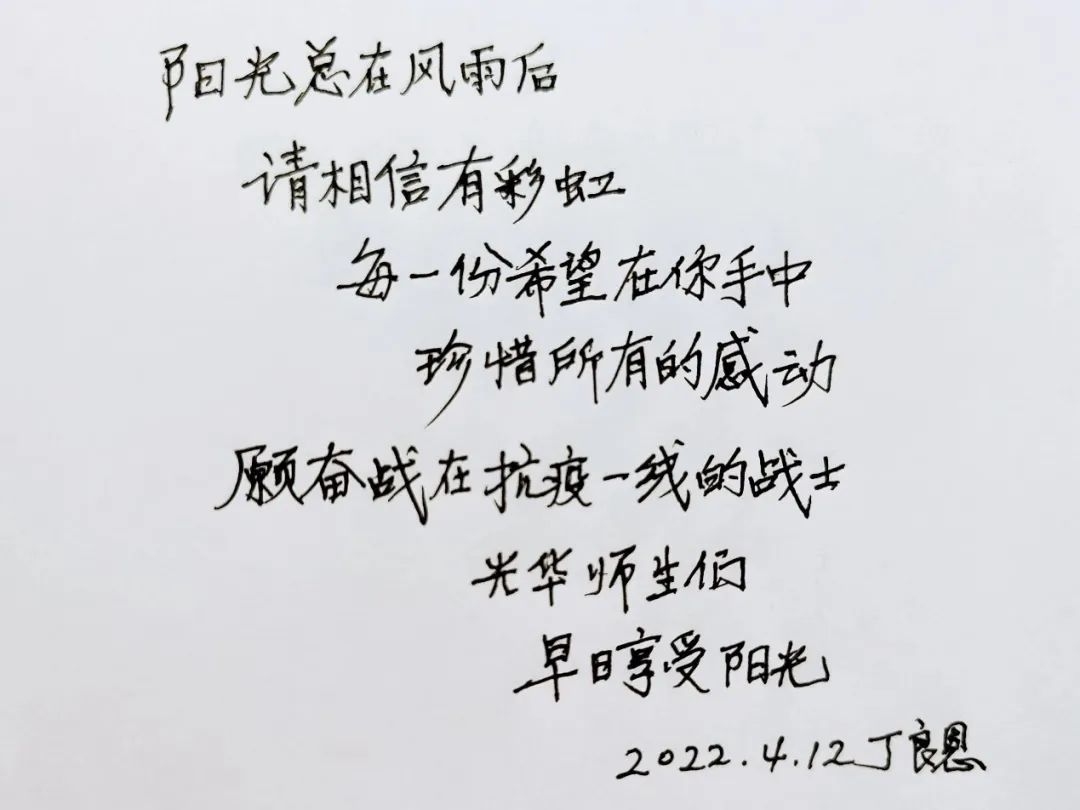 阳光总在风雨后
请相信有彩虹
每一份希望在你手中
珍惜所有的感动
愿奋战在抗疫一线的战士
光华师生们
早日享受阳光
2022.4.12丁良恩